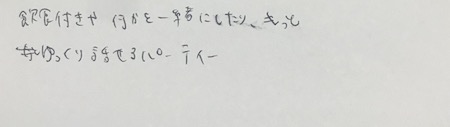 飲食付きや何かを一緒にしたり、もっと
ゆっくり話せるパーティー